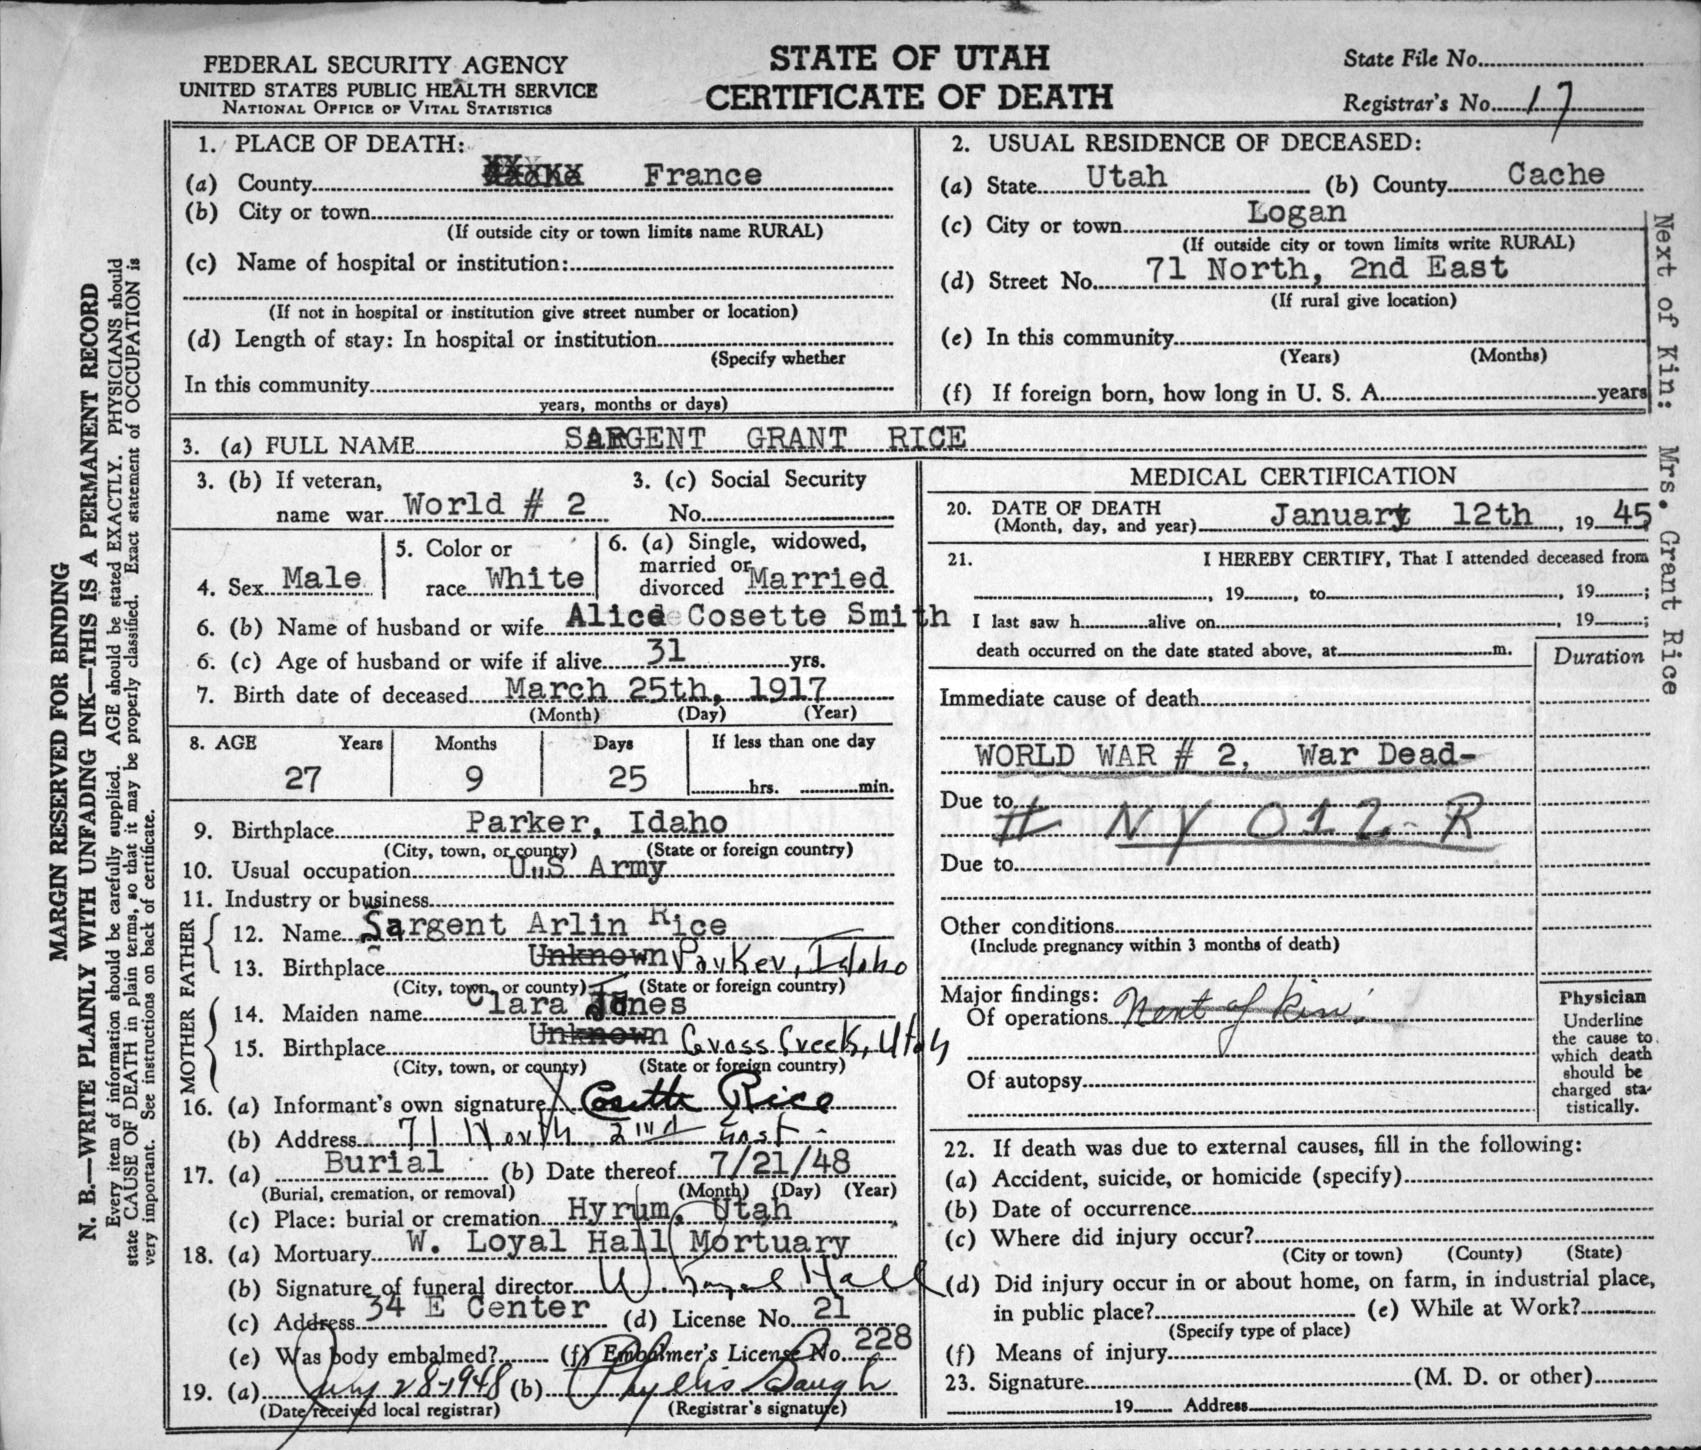 FEDERAL SECURITY AGENCY
UNITED STATES PUBLIC HEALTH SERVICE
NATIONAL OFFICE OF VITAL STATISTICS
STATE OF UTAH
CERTIFICATE OF DEATH
State File No.
Registrar's No. 17
MARGIN RESERVED FOR BINDING
N. B.—WRITE PLAINLY WITH UNFADING INK—THIS IS A PERMANENT RECORD
Every item of information should be carefully supplied. AGE should be stated EXACTLY. PHYSICIANS should
state CAUSE OF DEATH in plain terms, so that it may be properly classified. Exact statement of OCCUPATION is
very important. See instructions on back of certificate.
1. PLACE OF DEATH:
(a) County France
(b) City or town
(If outside city or town limits name RURAL)
(c) Name of hospital or institution:
(If not in hospital or institution give street number or location)
(d) Length of stay: In hospital or institution
(Specify whether
In this community
years, months or days)
2. USUAL RESIDENCE OF DECEASED:
(a) State Utah (b) County Cache
(c) City or town Logan
(If outside city or town limits write RURAL)
(d) Street No. 71 North, 2nd East
(If rural give location)
(e) In this community
(Years) (Months)
(f) If foreign born, how long in U. S. A. years
Next of Kin: Mrs. Grant Rice
3. (a) FULL NAME SARGENT GRANT RICE
3. (b) If veteran, 3. (c) Social Security
name war World # 2 No.
4. Sex Male
5. Color or
race White
6. (a) Single, widowed,
married or
divorced Married
6. (b) Name of husband or wife Alice Cosette Smith
6. (c) Age of husband or wife if alive 31 yrs.
7. Birth date of deceased March 25th, 1917
(Month) (Day) (Year)
8. AGE Years Months Days If less than one day
27 9 25 hrs. min.
9. Birthplace Parker, Idaho
(City, town, or county) (State or foreign country)
10. Usual occupation U.S Army
11. Industry or business
FATHER
12. Name Sargent Arlin Rice
13. Birthplace Unknown Parker, Idaho
(City, town, or county) (State or foreign country)
MOTHER
14. Maiden name Clara Jones
15. Birthplace Unknown Grass Creek, Utah
(City, town, or county) (State or foreign country)
16. (a) Informant's own signature X Cosette Rice
(b) Address 71 North 2nd East
17. (a) Burial (b) Date thereof 7/21/48
(Burial, cremation, or removal) (Month) (Day) (Year)
(c) Place: burial or cremation Hyrum, Utah
18. (a) Mortuary W. Loyal Hall Mortuary
(b) Signature of funeral director W. Loyal Hall
(c) Address 34 E Center (d) License No. 21
(e) Was body embalmed? (f) Embalmer's License No. 228
19. (a) 28-1948 (b) Phyllis Baugh
(Date received local registrar) (Registrar's signature)
MEDICAL CERTIFICATION
20. DATE OF DEATH
(Month, day, and year) January 12th, 1945
21. I HEREBY CERTIFY, That I attended deceased from
, 19 , to , 19 ;
I last saw h alive on , 19 ;
death occurred on the date stated above, at m.
Duration
Immediate cause of death
WORLD WAR # 2, War Dead-
Due to
# NY 012-R
Due to
Other conditions
(Include pregnancy within 3 months of death)
Major findings:
Of operations Next of kin:
Of autopsy
Physician
Underline
the cause to
which death
should be
charged sta-
tistically.
22. If death was due to external causes, fill in the following:
(a) Accident, suicide, or homicide (specify)
(b) Date of occurrence
(c) Where did injury occur?
(City or town) (County) (State)
(d) Did injury occur in or about home, on farm, in industrial place,
in public place? (e) While at Work?
(Specify type of place)
(f) Means of injury
23. Signature (M. D. or other)
19 Address